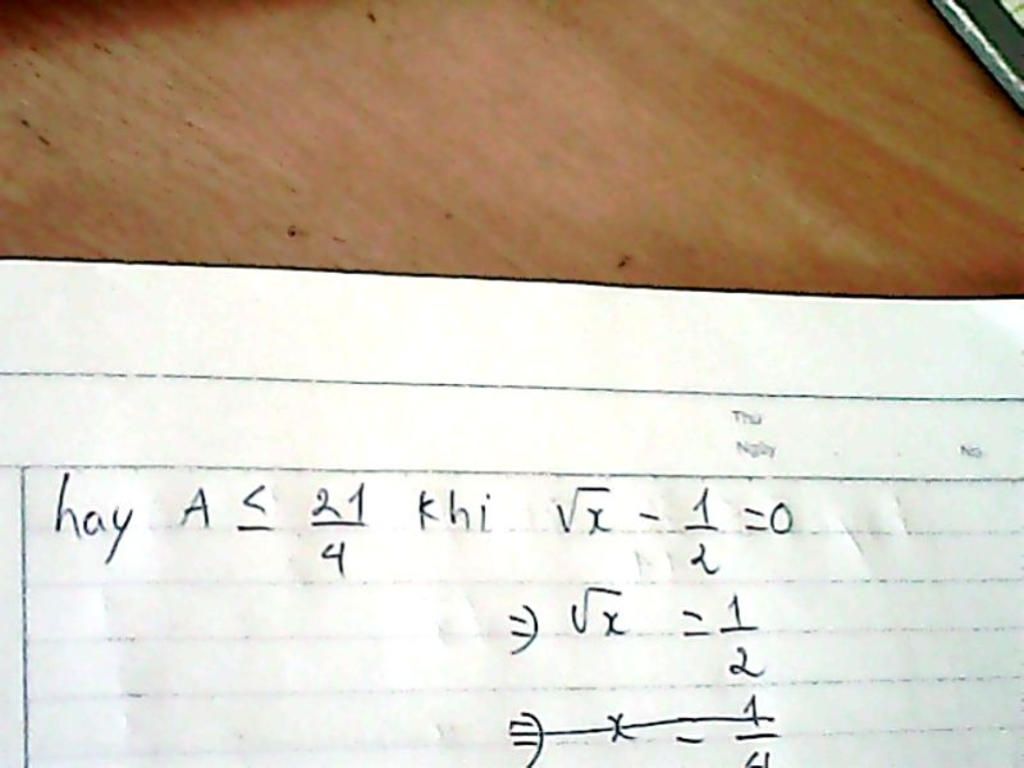 Thứ
Ngày No
hay A ≤ 21/4 khi √x - 1/2 = 0
⇒ √x = 1/2
⇒ x = 1/4